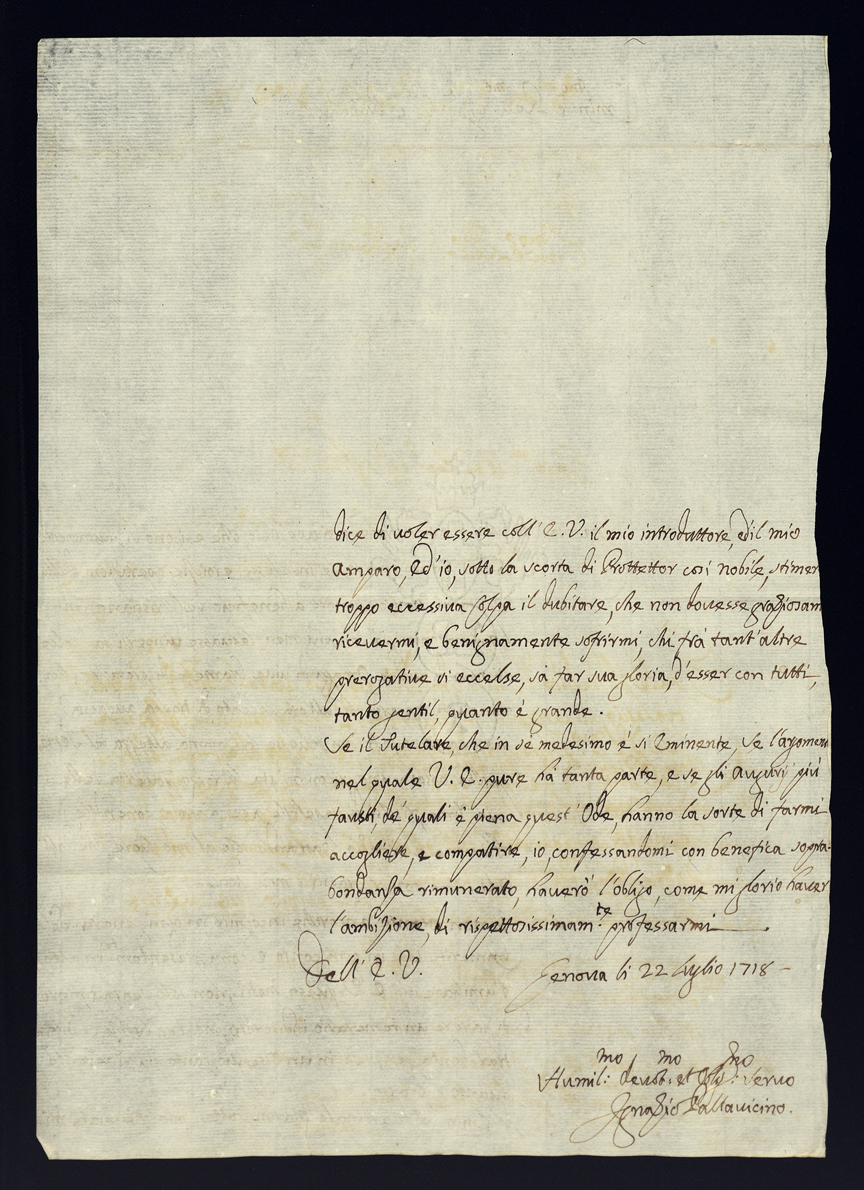 dice di uoler essere coll' E. V. il mio introduttore, ed'il mio
Amparo, Ed'io, sotto la scorta di Prottettor così nobile, stimer
troppo eccessiua Colpa il dubitare, che non douesse graziosam
riceuermi, e benignamente sofrirmi, chi frà tant'altre
prerogatiue si eccelse, sà far sua gloria, d'esser con tutti,
tanto gentil, quanto è grande.
Se il Tutelare, che in sé medesimo é si Eminente, se l'argomen
nel quale V. E. pure hà tanta parte, e se gli Augurij più
fausti, dé quali è piena quest' Ode, hanno la sorte di farmi
accogliere, e compatire, io, confessandomi con benefica sopra-
bondanza rimunerato, hauerò l'obligo, come mi glorio hauer
l'ambizione, di rispettosissimam.te professarmi
Dell' E. V. Genoua li 22 luglio 1718
Humil:mo deuot:mo et Obl:mo seruo
Ignazio Pallauicino.